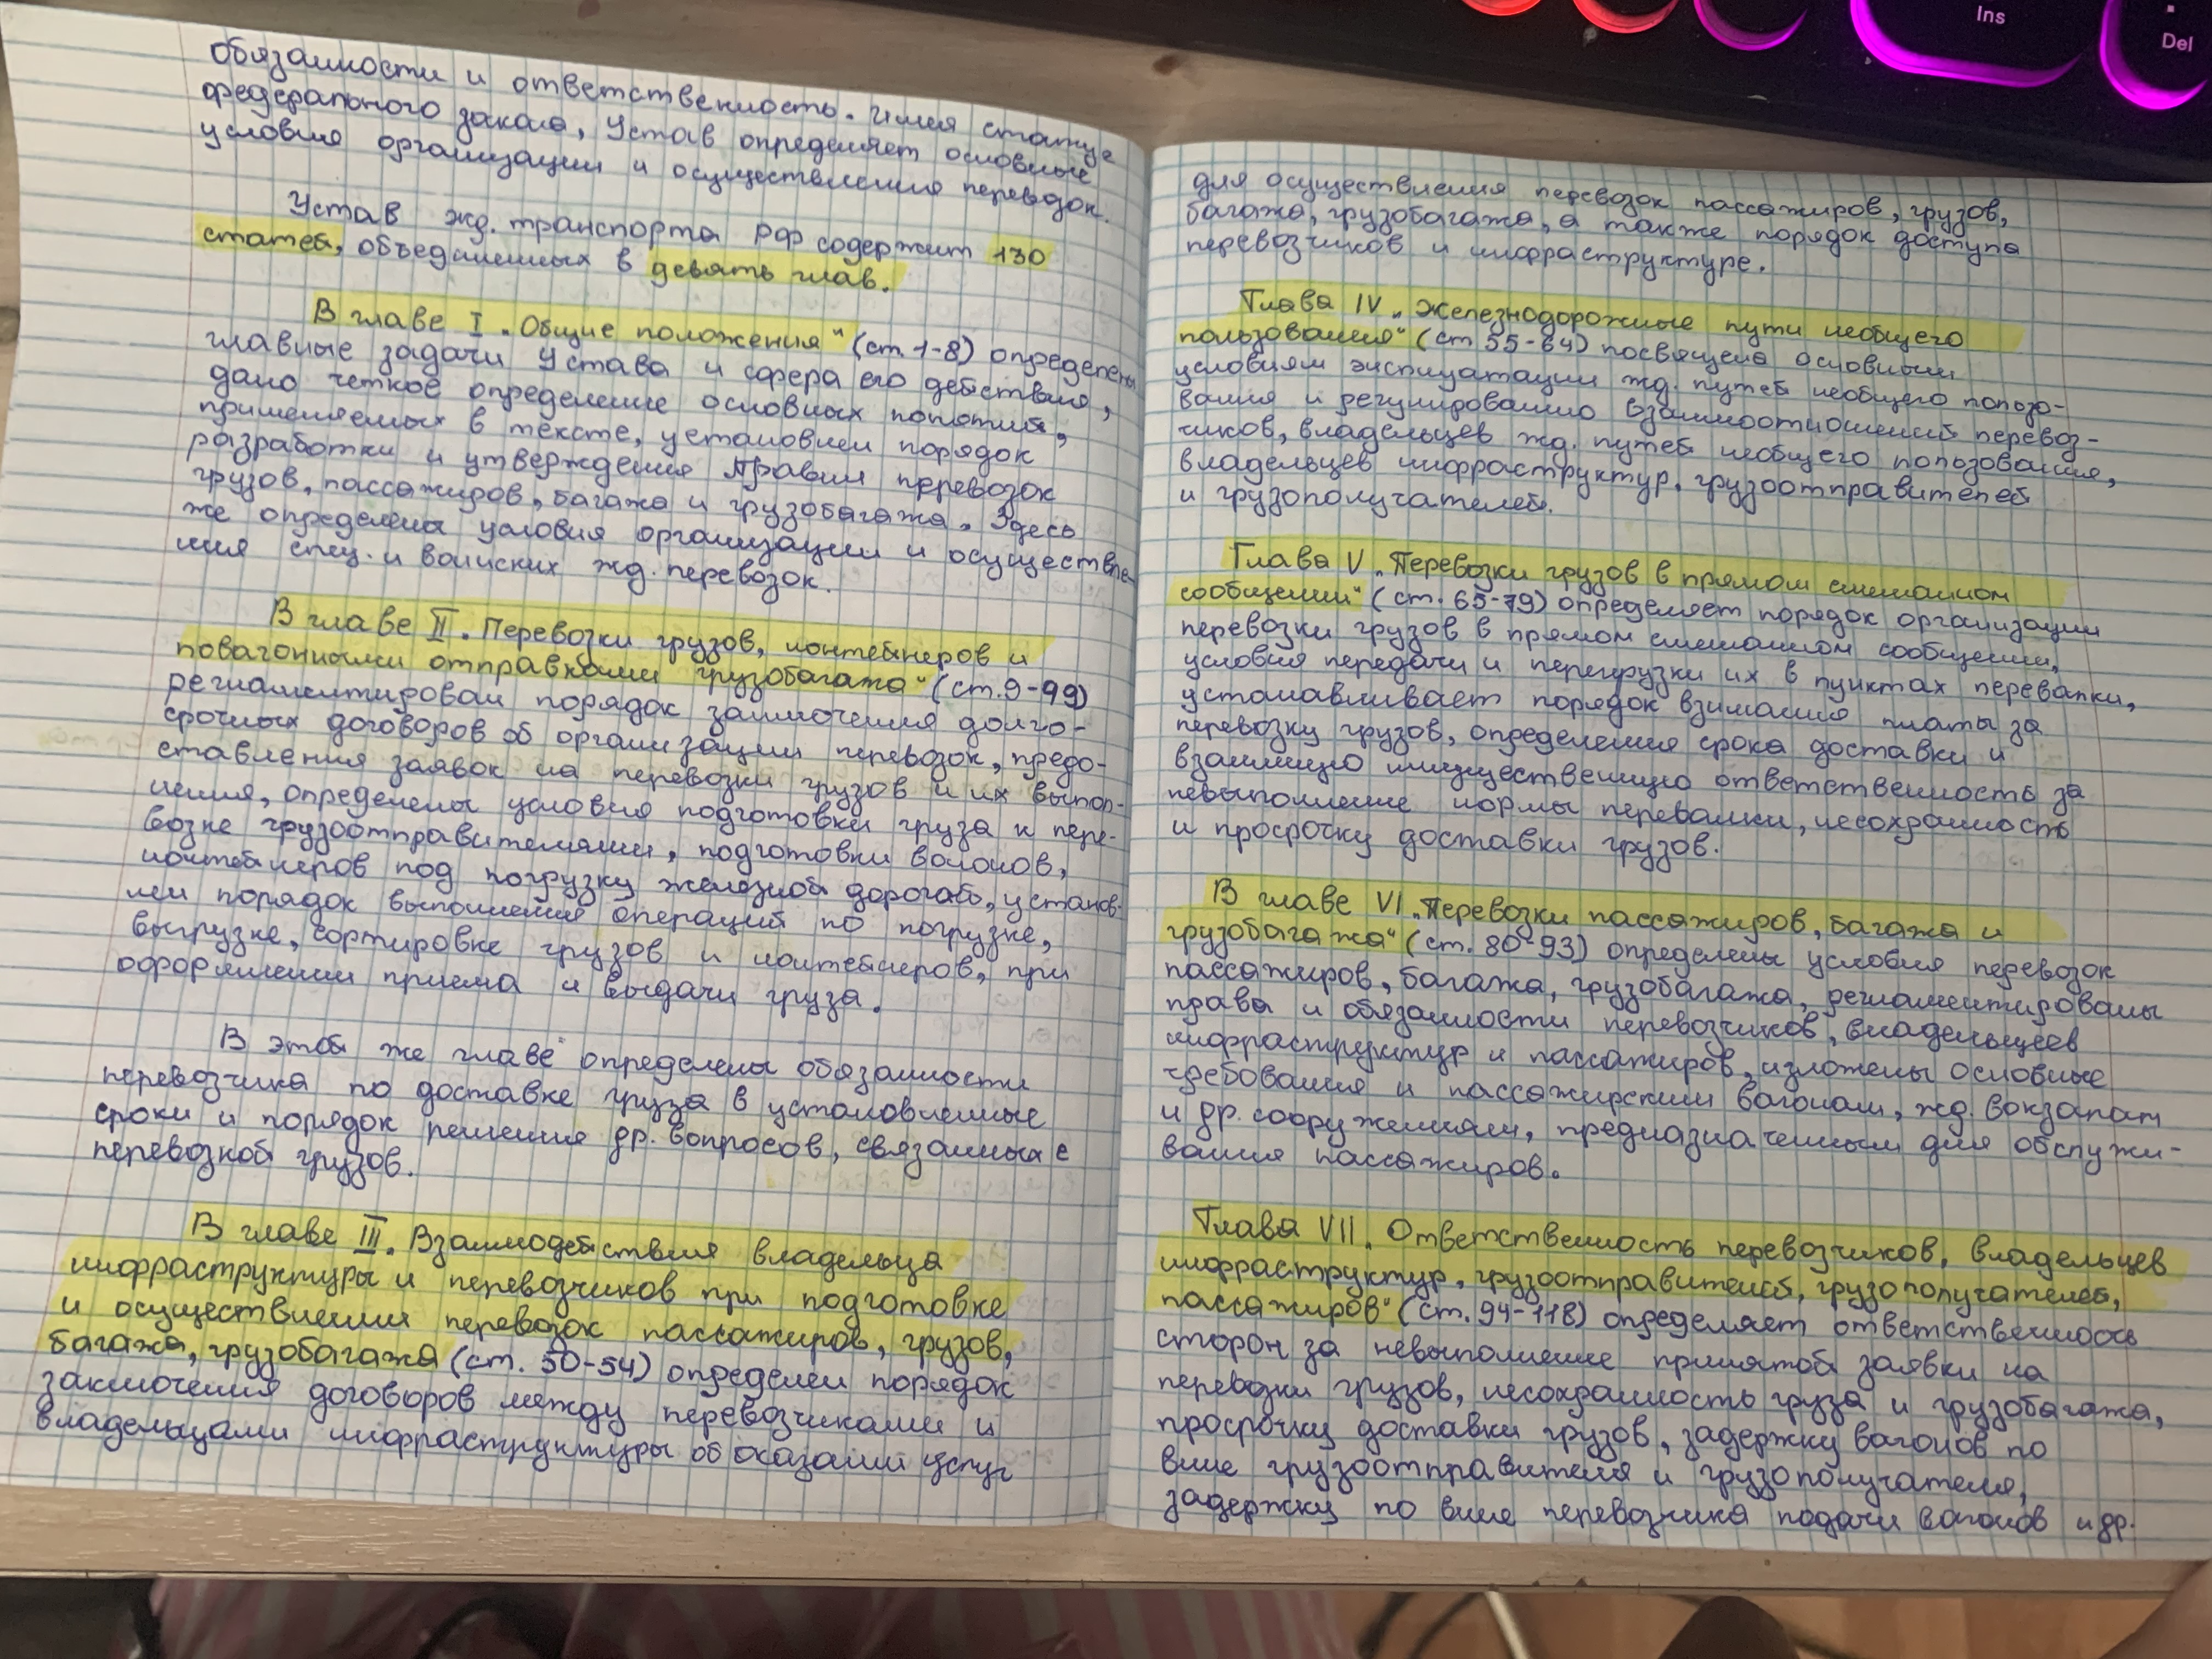 обязанности и ответственность. Имея статус
федерального закона, Устав определяет основные
условия организации и осуществления перевозок.
Устав жд. транспорта РФ содержит 130
статей, объединенных в девять глав.
В главе I „Общие положения“ (ст. 1-8) определены
главные задачи Устава и сфера его действия,
дано четкое определение основных понятий,
применяемых в тексте, установлен порядок
разработки и утверждения Правил перевозок
грузов, пассажиров, багажа и грузобагажа. Здесь
же определена условия организации и осуществле-
ния спец. и воинских жд. перевозок.
В главе II „Перевозки грузов, контейнеров и
повагонными отправками грузобагажа“ (ст. 9-49)
регламентирован порядок заключения долго-
срочных договоров об организации перевозок, предо-
ставления заявок на перевозки грузов и их выпол-
нения, определены условия подготовки груза к пере-
возке грузоотправителями, подготовки вагонов,
контейнеров под погрузку железной дорогой, установ-
лен порядок выполнения операций по погрузке,
выгрузке, сортировке грузов и контейнеров, при
оформлении приема и выдачи груза.
В этой же главе определены обязанности
перевозчика по доставке груза в установленные
сроки и порядок решения др. вопросов, связанных с
перевозкой грузов.
В главе III „Взаимодействия владельца
инфраструктуры и перевозчиков при подготовке
и осуществлении перевозок пассажиров, грузов,
багажа, грузобагажа (ст. 50-54) определен порядок
заключения договоров между перевозчиками и
владельцами инфраструктуры об оказании услуг
для осуществления перевозок пассажиров, грузов,
багажа, грузобагажа, а также порядок доступа
перевозчиков к инфраструктуре.
Глава IV „Железнодорожные пути необщего
пользования“ (ст 55-64) посвящена основным
условиям эксплуатации жд. путей необщего пользо-
вания и регулированию взаимоотношений перевоз-
чиков, владельцев жд. путей необщего пользования,
владельцев инфраструктур, грузоотправителей
и грузополучателей.
Глава V „Перевозки грузов в прямом смешанном
сообщении“ (ст. 65-79) определяет порядок организации
перевозки грузов в прямом смешанном сообщении,
условия передачи и перегрузки их в пунктах перевалки,
устанавливает порядок взимания платы за
перевозку грузов, определения срока доставки и
взаимную имущественную ответственность за
невыполнение нормы перевалки, несохранность
и просрочку доставки грузов.
В главе VI „Перевозки пассажиров, багажа и
грузобагажа“ (ст. 80-93) определены условия перевозок
пассажиров, багажа, грузобагажа, регламентированы
права и обязанности перевозчиков, владельцев
инфраструктур и пассажиров, изложены основные
требования к пассажирским вагонам, жд. вокзалам
и др. сооружениям, предназначенным для обслужи-
вания пассажиров.
Глава VII „Ответственность перевозчиков, владельцев
инфраструктур, грузоотправителей, грузополучателей,
пассажиров“ (ст. 94-118) определяет ответственность
сторон за невыполнение принятой заявки на
перевозки грузов, несохранность груза и грузобагажа,
просрочку доставки грузов, задержку вагонов по
вине грузоотправителя и грузополучателя,
задержку по вине перевозчика подачи вагонов и др.
Ins
Del